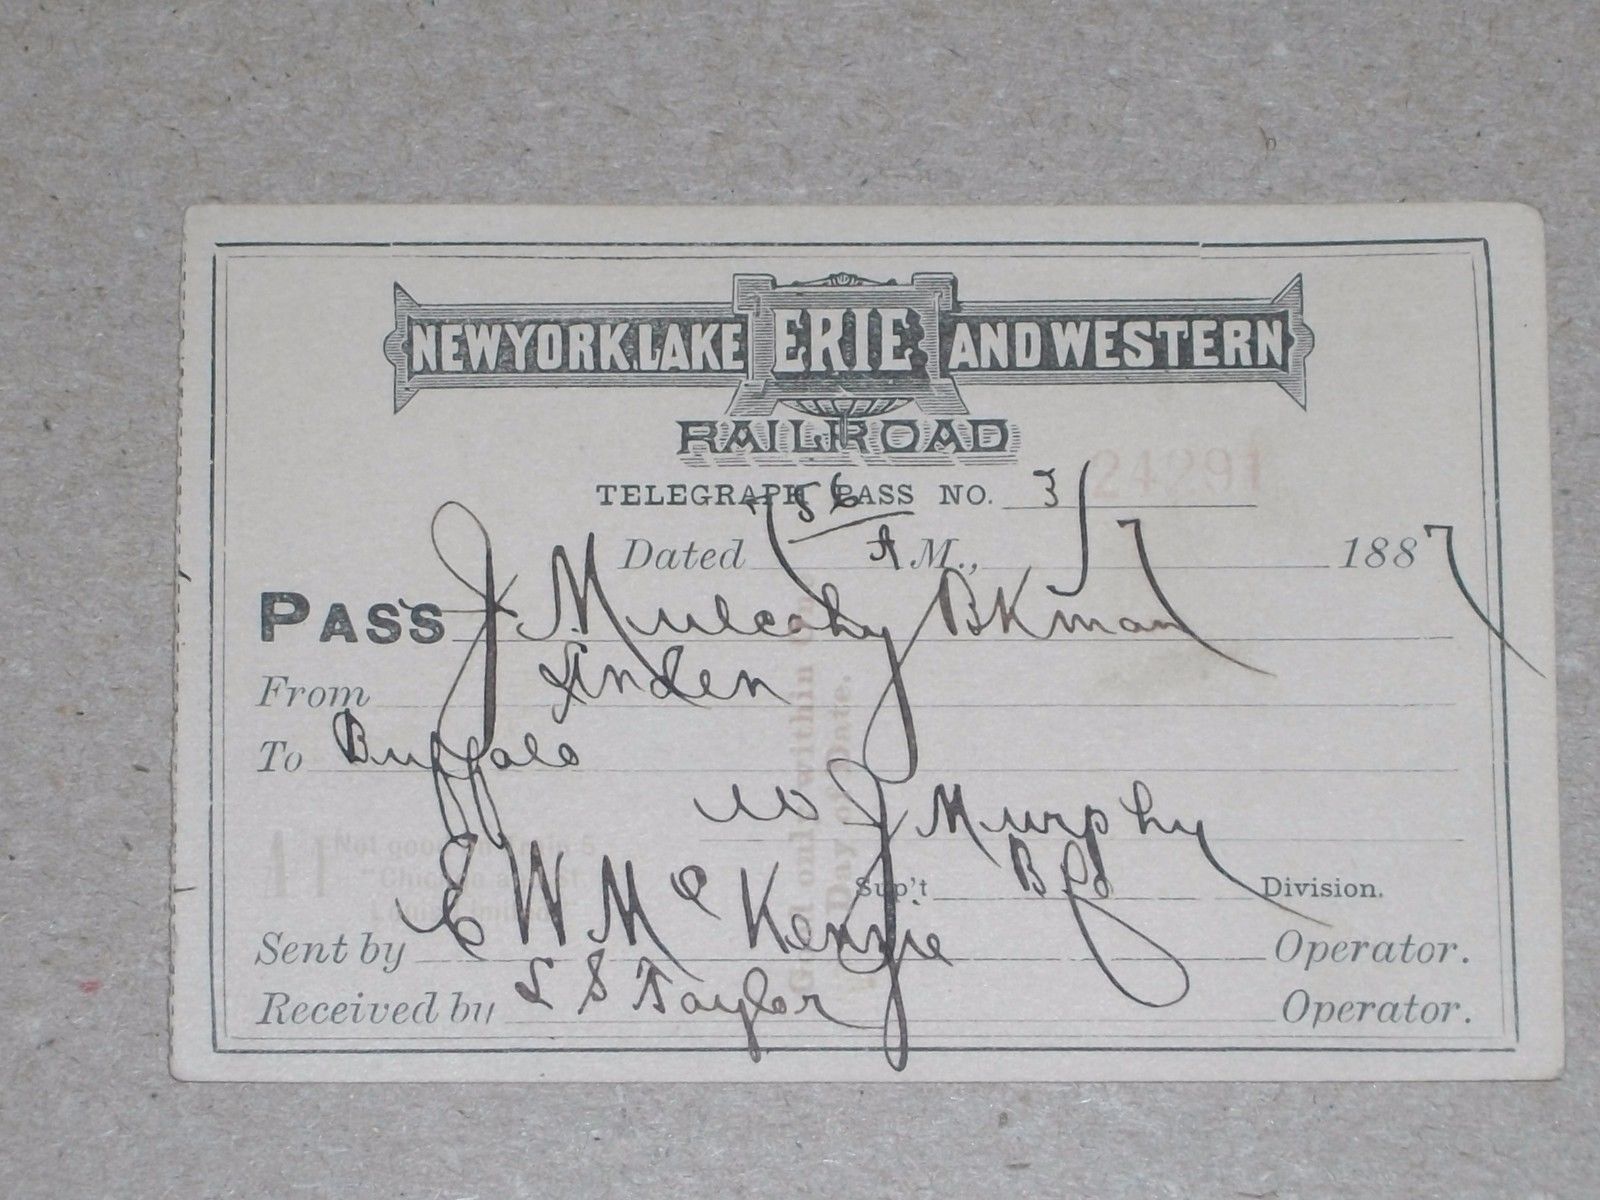 NEW YORK, LAKE ERIE AND WESTERN
RAILROAD
24291
TELEGRAPH PASS NO. 3
Dated 7 56 A M., 1/7 1887
PASS J. Mulcahy BKman
From Linden
To Buffalo
W J Murphy
Sup't Bfo Division.
Sent by E W McKenzie Operator.
Received by L S Taylor Operator.
Good only within one
Day of Date.
Not good on Train 5
"Chicago and St
Louis Limited"